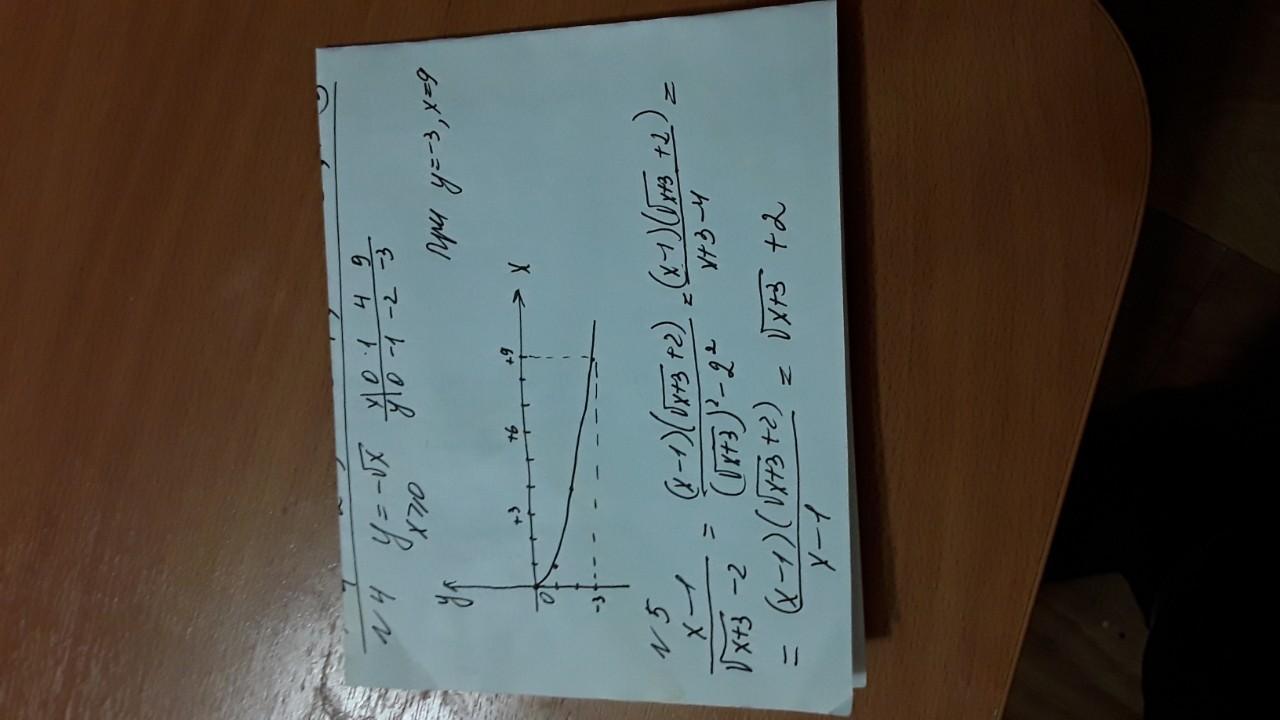 N4 y = -√x x | 0 1 4 9
x≥0 y | 0 -1 -2 -3
При y=-3, x=9
y
0 +3 +6 +9 x
-3
N5
(x-1)/(√(x+3) -2) = (x-1)(√(x+3) +2)/((√(x+3))² - 2²) = (x-1)(√(x+3) +2)/(x+3-4) =
= (x-1)(√(x+3) +2)/(x-1) = √(x+3) +2